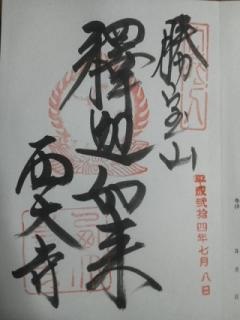 勝宝山
平成弐拾四年七月八日
釋迦如来
西大寺